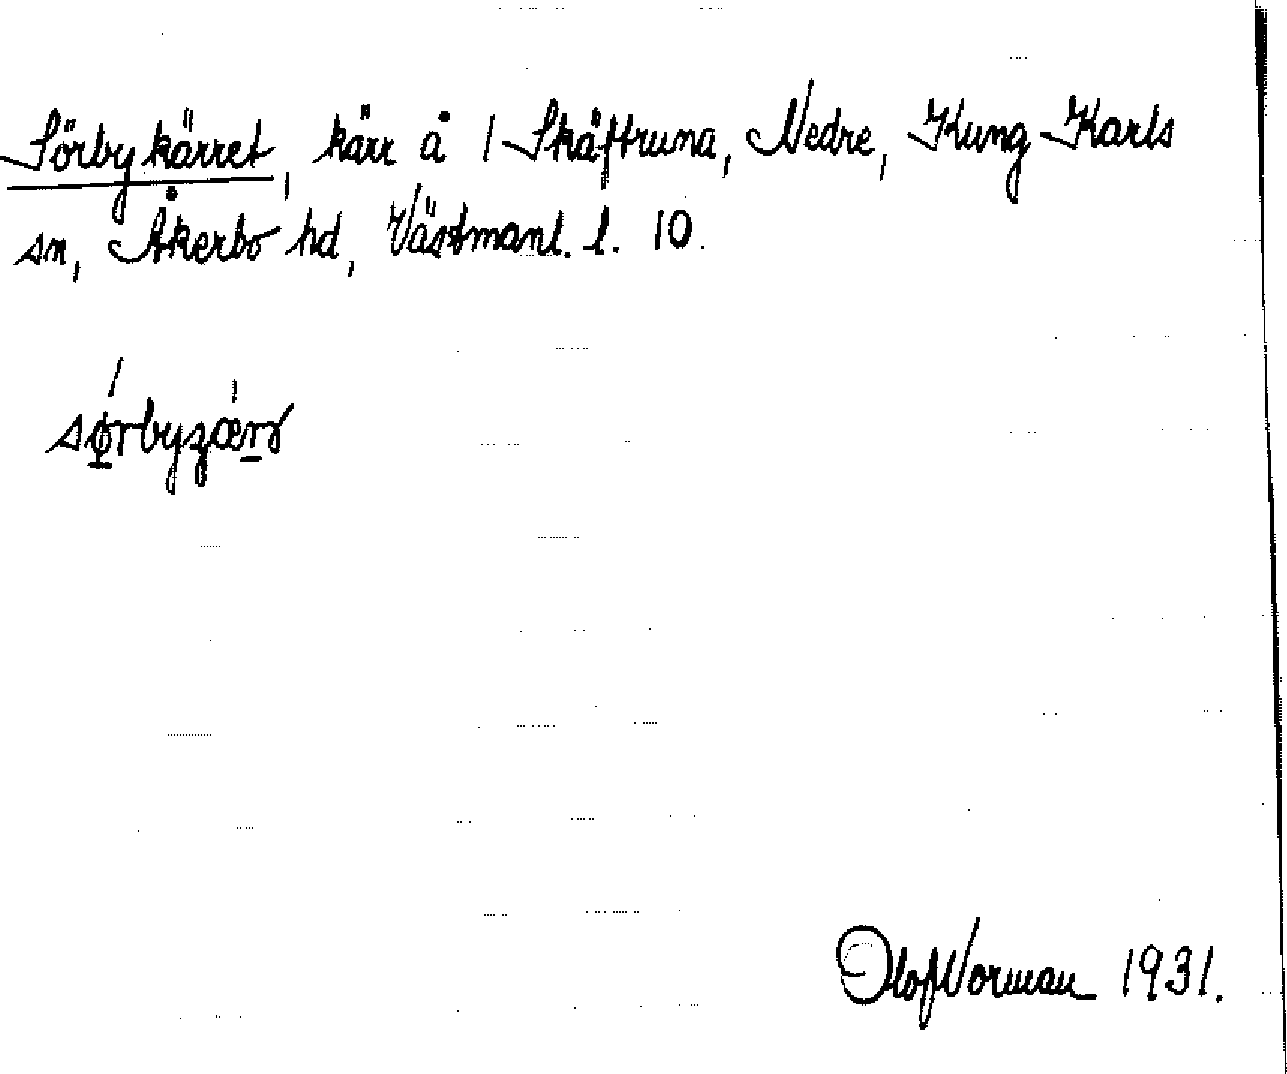 Sörbykärret, kärr å 1 Skäftruna, Nedre, Kung-Karls
sn, Åkerbo hd, Västmanl. l. 10.
sørbyzærr
Olof Norman 1931.